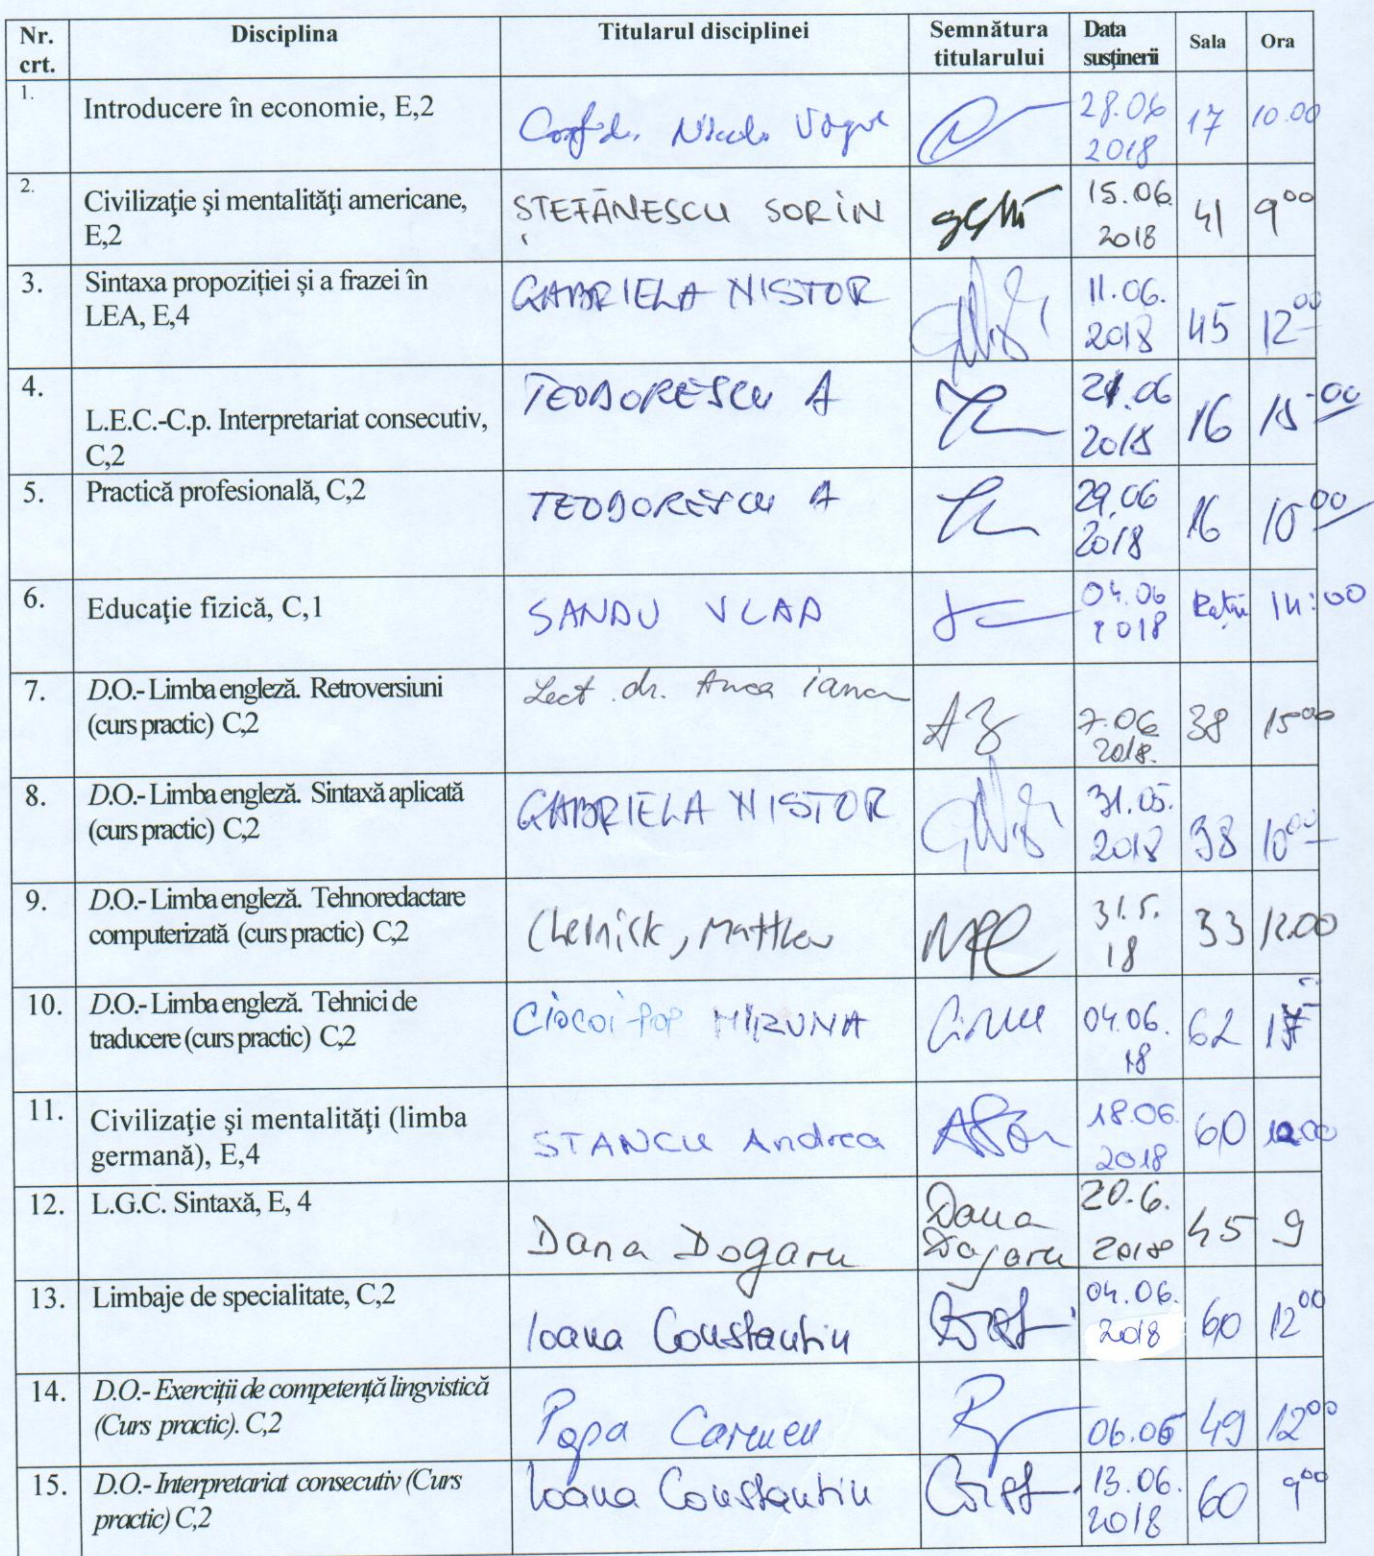 Nr. crt. Disciplina Titularul disciplinei Semnătura titularului Data susţinerii Sala Ora
1. Introducere în economie, E,2 Conf. dr. 28.06 2018 17 10.00
2. Civilizaţie şi mentalităţi americane, E,2 ȘTEFĂNESCU SORIN 15.06. 2018 41 9⁰⁰
3. Sintaxa propoziției și a frazei în LEA, E,4 GABRIELA NISTOR 11.06. 2018 45 12⁰⁰
4. L.E.C.-C.p. Interpretariat consecutiv, C,2 TEODORESCU A 06 2018 16
5. Practică profesională, C,2 TEODORESCU A 29.06 2018 16 10⁰⁰
6. Educaţie fizică, C,1 SANDU VLAD 04.06 2018 14:00
7. D.O.- Limba engleză. Retroversiuni (curs practic) C,2 Lect. dr. Anca Iancu 7.06 2018. 38 15⁰⁰
8. D.O.- Limba engleză. Sintaxă aplicată (curs practic) C,2 GABRIELA NISTOR 31.05. 2018 38 10⁰⁰
9. D.O.- Limba engleză. Tehnoredactare computerizată (curs practic) C,2 Matthew 31.5. 18 33 12.00
10. D.O.- Limba engleză. Tehnici de traducere (curs practic) C,2 Ciocoi-Pop MIRUNA 04.06. 18 62
11. Civilizaţie şi mentalităţi (limba germană), E,4 STANCU Andrea 18.06. 2018 60
12. L.G.C. Sintaxă, E, 4 Dana Dogaru Dana Dogaru 20.6. 2018 45 9
13. Limbaje de specialitate, C,2 Ioana Constantin 04.06. 2018 60 12⁰⁰
14. D.O.- Exerciții de competență lingvistică (Curs practic). C,2 Popa Carmen 49 12⁰⁰
15. D.O.- Interpretariat consecutiv (Curs practic) C,2 Ioana Constantin 13.06. 2018 60 9⁰⁰